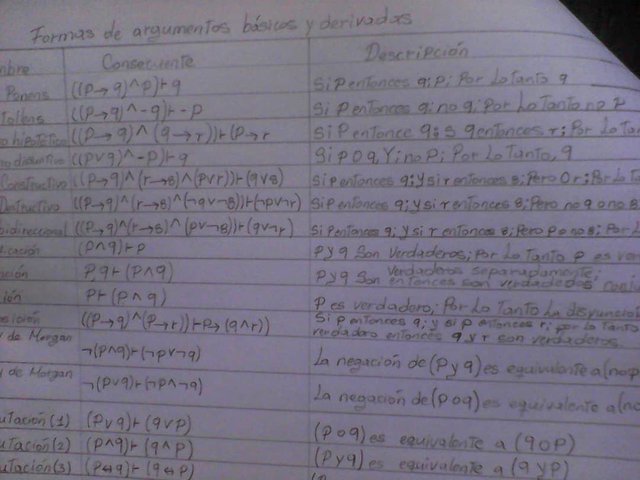 Formas de argumentos básicos y derivadas
mbre Consecuente Descripción
Ponens ((P→q)^P)⊢q Si P entonces q; P; Por Lo Tanto q
Tollens ((P→q)^-q)⊢-P Si P entonces q; no q; Por Lo Tanto no P
o hipotético ((P→q)^(q→r))⊢(P→r Si P entonce q; s q entonces r; Por Lo Ta
o disyuntivo ((P∨q)^-P)⊢q Si P O q Y; no P; Por Lo Tanto, q
Constructivo ((P→q)^(r→s)^(P∨r))⊢(q∨s) Si P entonces q; y si r entonces s; Pero O r; Por Lo Ta
Destructivo ((P→q)^(r→s)^(¬q∨¬s))⊢(¬P∨¬r) Si P entonces q; y si r entonces s; Pero no q o no s
bidireccional ((P→q)^(r→s)^(P∨¬s))⊢(q∨¬r) Si P entonces q; y si r entonces s; Pero P o no s; Por L
icación (P^q)⊢P P y q Son verdaderos; Por Lo Tanto P es ver
ación P q⊢(P^q) P y q Son verdaderos separadamente;
entonces son
ión P⊢(P^q) P es verdadero; Por Lo Tanto La disyunción
osición ((P→q)^(P→r))⊢P→(q^r)) Si P entonces q; y si P entonces r; por lo tanto
verdadero entonces q y r son verdaderos
y de Morgan ¬(P^q)⊢(¬P∨¬q) La negación de (P y q) es equivalente a (no p
y de Morgan ¬(P∨q)⊢(¬P^¬q) La negación de (P o q) es equivalente a (no
utación (1) (P∨q)⊢(q∨P) (P o q) es equivalente a (q o P)
utación (2) (P^q)⊢(q^P) (P y q) es equivalente a (q y P)
utación (3) (P↔q)⊢(q↔P)